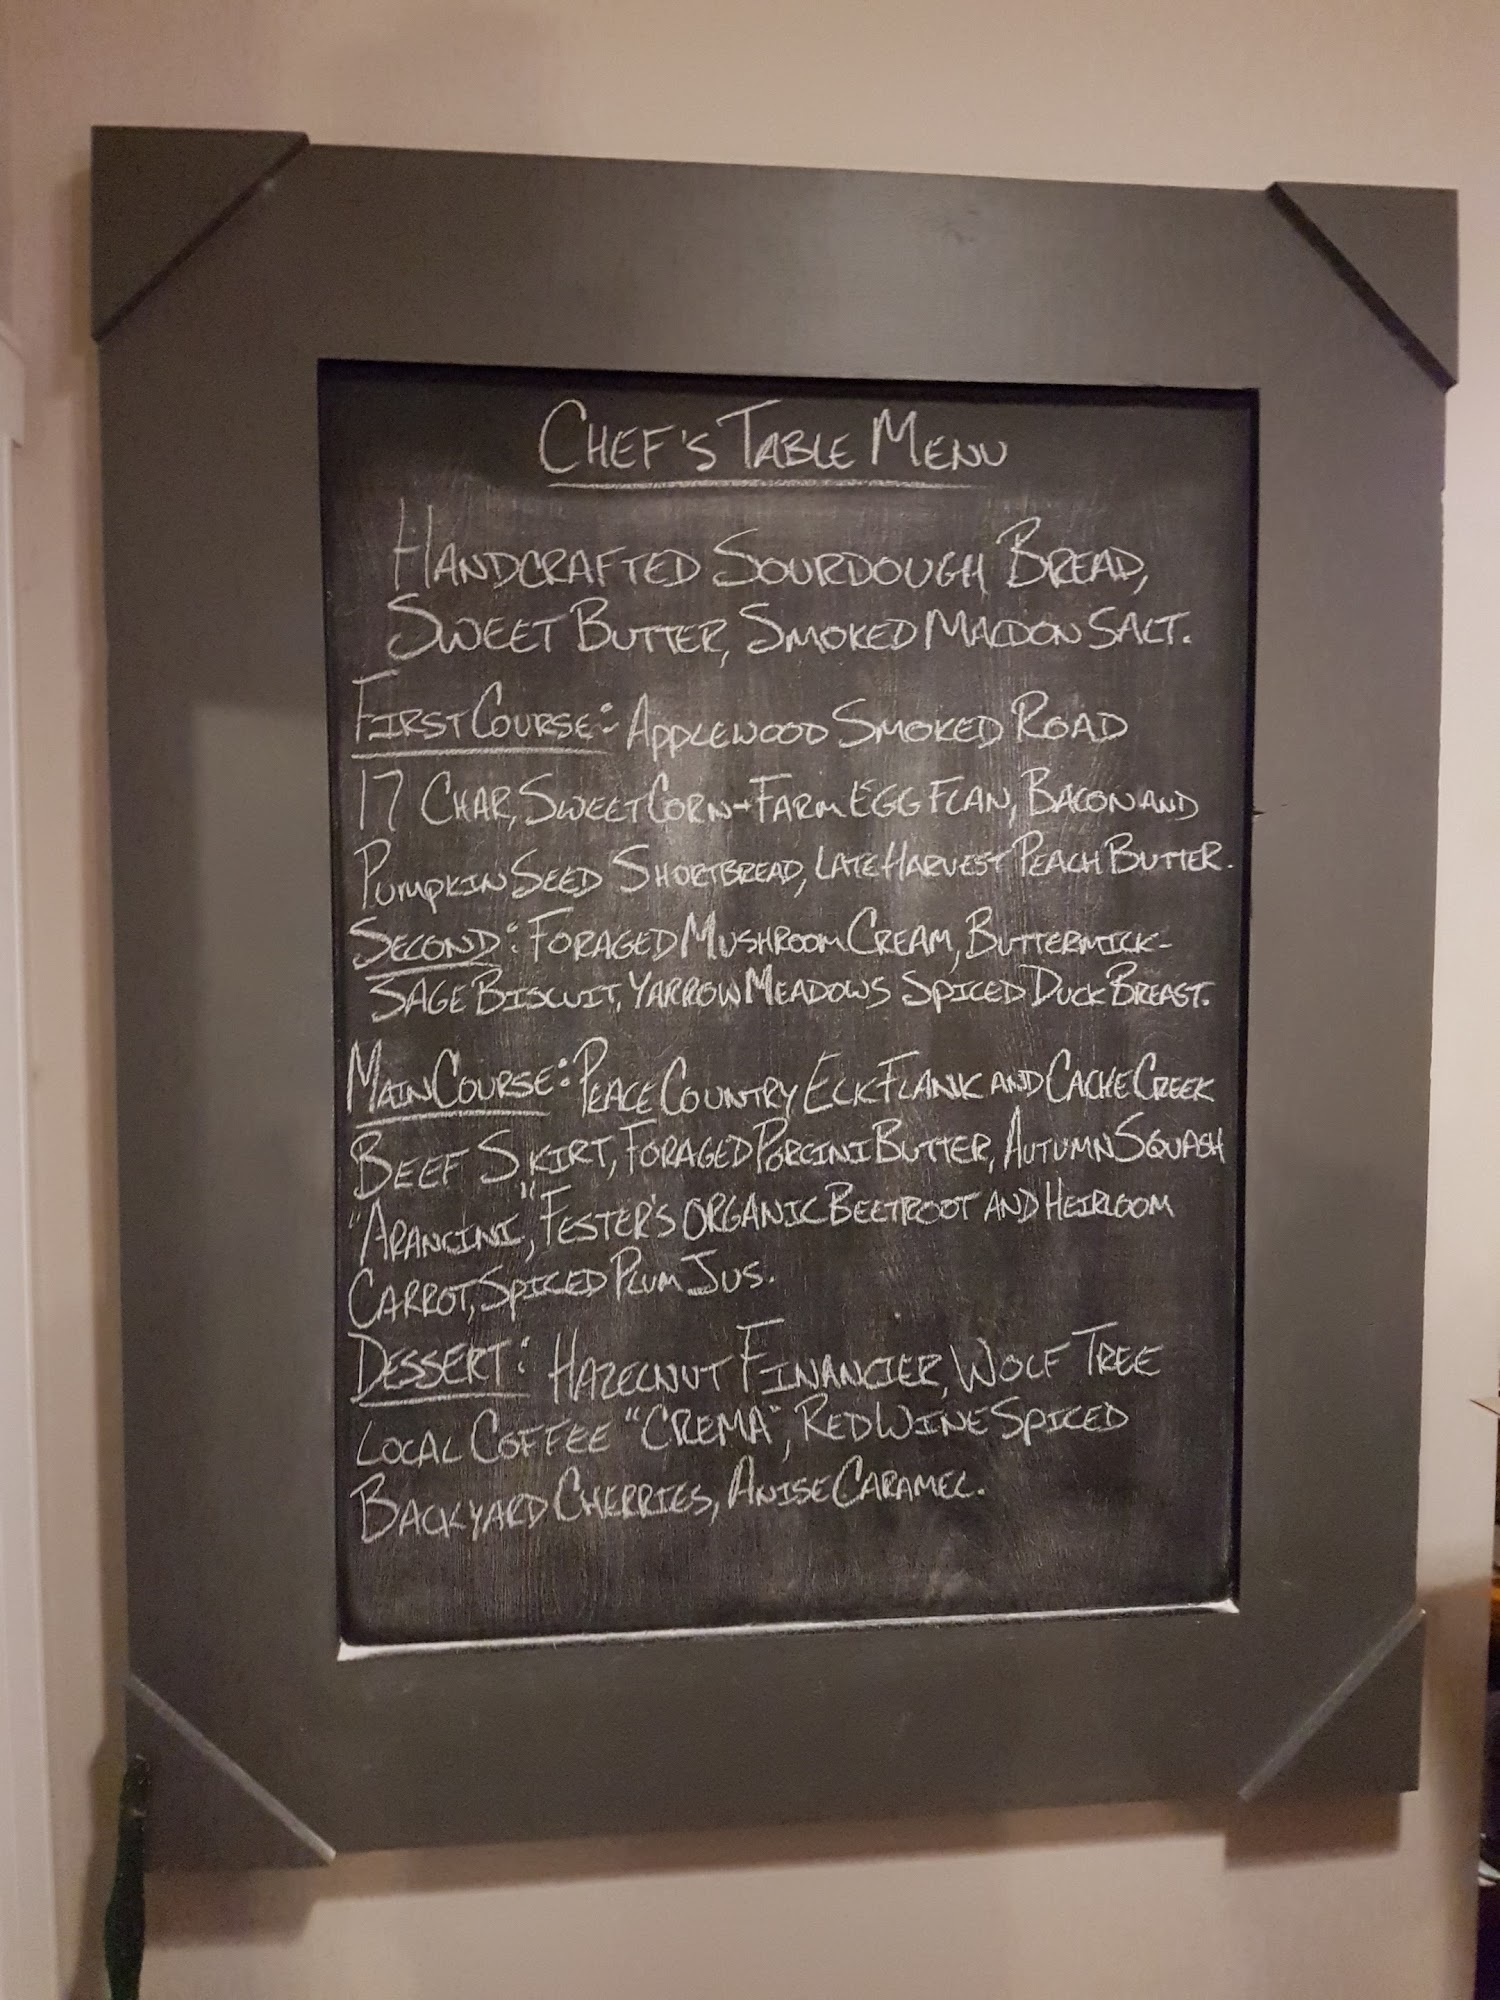 CHEF'S TABLE MENU
HANDCRAFTED SOURDOUGH BREAD,
SWEET BUTTER, SMOKED MALDON SALT.
FIRST COURSE: APPLEWOOD SMOKED ROAD
17 CHAR, SWEET CORN-FARM EGG FLAN, BACON AND
PUMPKIN SEED SHORTBREAD, LATE HARVEST PEACH BUTTER.
SECOND: FORAGED MUSHROOM CREAM, BUTTERMILK-
SAGE BISCUIT, YARROW MEADOWS SPICED DUCK BREAST.
MAIN COURSE: PEACE COUNTRY ELK FLANK AND CACHE CREEK
BEEF SKIRT, FORAGED PORCINI BUTTER, AUTUMN SQUASH
"ARANCINI", FESTER'S ORGANIC BEETROOT AND HEIRLOOM
CARROT, SPICED PLUM JUS.
DESSERT: HAZELNUT FINANCIER, WOLF TREE
LOCAL COFFEE "CREMA", RED WINE SPICED
BACKYARD CHERRIES, ANISE CARAMEL.